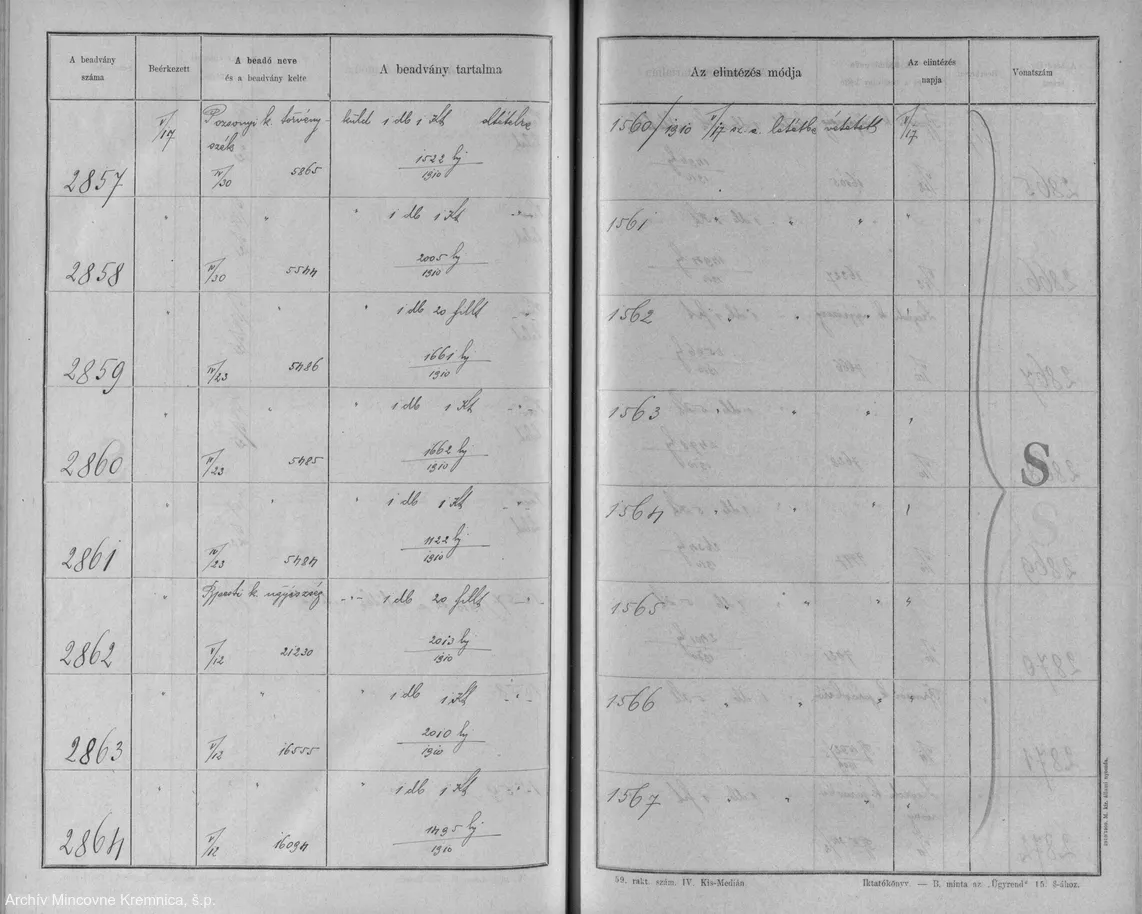 A beadvány
száma
Beérkezett
A beadó neve
és a beadvány kelte
A beadvány tartalma
V/17
Pozsonyi k. törvény-
szék
küld 1 db 1 Kt
2857
IV/30 5865
1522 bj
1910
" " " 1 db 1 Kt - " -
2858
IV/30 5544
2005 bj
1910
" 1 db 20 fillt
2859
IV/23 5486
1661 bj
1910
" " " 1 db 1 Kt - " -
2860
IV/23 5485
1662 bj
1910
" " " 1 db 1 Kt - " -
2861
IV/23 5484
1910
" k. ügyészség - " - 1 db 20 fillt - " -
2862
V/12 21230
2013 bj
1910
" " 1 db 1 Kt - " -
2863
V/12 16555
2010 bj
1910
" " " 1 db 1 Kt - " -
2864
V/12 16094
1495 bj
1910
Az elintézés módja
Az elintézés
napja
Vonatszám
1560/1910 V/17 sz. a. letétbe vétetett V/17
1561 " " "
1562 " " " "
1563 " " " "
1564 " " " "
1565 " " " "
1566 " " " "
1567 " " " "
S
59. rakt. szám. IV. Kis-Medián
Iktatókönyv. — B. minta az „Ügyrend" 15. §-ához.
Archív Mincovne Kremnica, š.p.